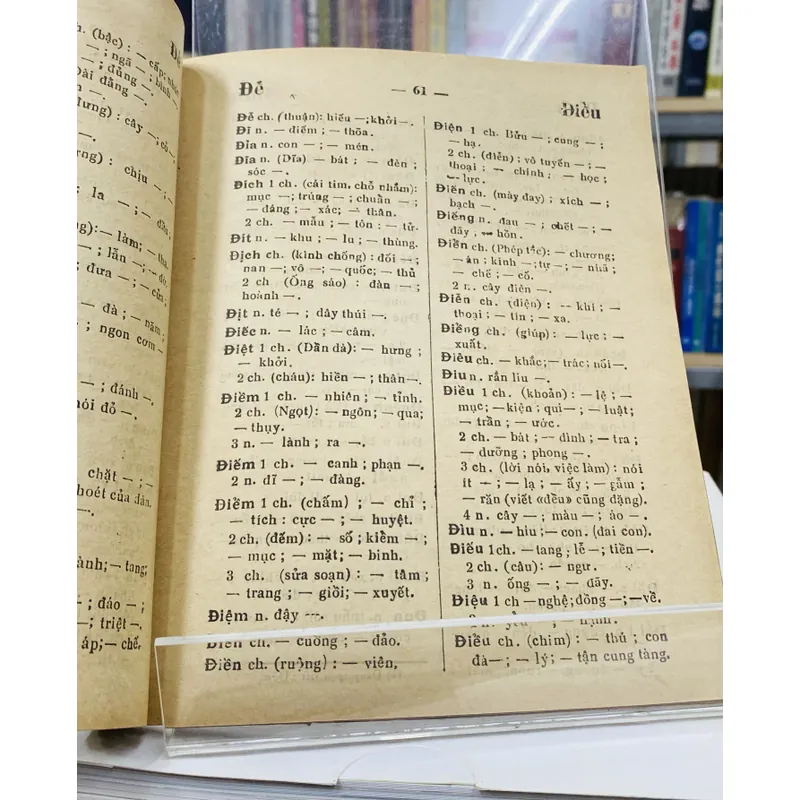 ch. (bậc) : — cấp; nhục
— ; ngã — ; bình —
— ; đủng — ;
đài đẳng —.
cây — ; cò —.
chịu — ;
la — ;
— làm;
— ; lẫn — ;
đưa — ; — cửa.
— đà ; — năm ;
; ngon cơm —
— ; đánh —.
nói đỏ —.
chặt — ; —
— hoét của đàn.
—.
ành; — tang,
— đáo — ;
— ; — triệt —.
áp; — chế,
Để — 61 — Điều
Để ch. (thuận): hiếu —; khởi —.
Đĩ n. — điếm ; — thõa.
Đỉa n. con — ; — mén.
Đĩa n. (Dĩa) — bát ; — đèn ;
sóc —.
Đích 1 ch. (cái tim, chỗ nhắm):
mục —; trúng — ; chuẩn — ;
— đáng ; — xác; — thân.
2 ch. — mẫu ; — tôn ; — tử.
Đít n. — khu ; — lu ; — thùng.
Địch ch. (kình chống) : đối — ;
nan — ; vô — ; — quốc; — thủ
2 ch (Ống sáo) : đàn — ;
hoành —.
Địt n. té — ; dây thúi —.
Điếc n. — lác ; — câm.
Điệt 1 ch. (Dần dà): — hưng ;
— khởi.
2 ch. (cháu): hiền — ; thân—.
Điềm 1 ch. — nhiên ; — tỉnh.
2 ch. (Ngọt) : — ngôn ; — qua;
— thụy.
3 n. — lành ; ra —.
Điếm 1 ch. — canh ; phạn —.
2 n. đĩ — ; — đàng.
Điểm 1 ch. (chấm) ; — chỉ ;
— tích : cực — ; — huyệt.
2 ch. (đếm) : — số ; kiểm — ;
— mục ; — mặt ; — binh.
3 ch. (sửa soạn) : — tâm ;
— trang ; — giồi; — xuyết.
Điệm n. đậy —.
Điên ch. — cuồng ; — đảo.
Điền ch. (ruộng) : — viên,
Điện 1 ch. Bửu — ; cung — ;
— hạ.
2 ch. (điễn) ; vô tuyến — ; —
thoại ; — chính ; — học ;
— lực.
Điền ch. (mày đay) ; xích — ;
bạch —.
Điếng n. đau — ; chết — ; —
dãy ; — hồn.
Điển ch. (Phép tắc) : — chương;
— án ; kinh — ; tự — ; — nhã ;
— chế ; — cố.
2 n. cây điên —.
Điễn ch. (điện) : — khí ; —
thoại ; — tín ; — xa.
Điềng ch. (giúp) : — lực ; —
xuất.
Điêu ch. — khắc; — trác; nổi —.
Điu n. rắn liu —.
Điều 1 ch. (khoản) : — lệ ; —
mục; — kiện ; qui— ; — luật;
— trần ; — ước.
2 ch. — bát ; — đình ; — tra ;
— dưỡng ; phong —.
3 ch. (lời nói, việc làm) : nói
ít — ; — lạ ; — ấy ; — gẫm ;
— răn (viết «đều» cũng đặng).
4 n. cây — ; màu — ; áo —.
Đìu n. — hiu ; — con. (đai con).
Điếu 1 ch. — tang ; lễ — ; tiền —.
2 ch. (câu) : — ngư.
3 n. ống — ; — đãy.
Điệu 1 ch — nghệ; đồng — ; — về.
n. yểu — ; — hạnh.
Điểu ch. (chim) : — thú ; con
đà — ; — lý ; — tận cung tàng.